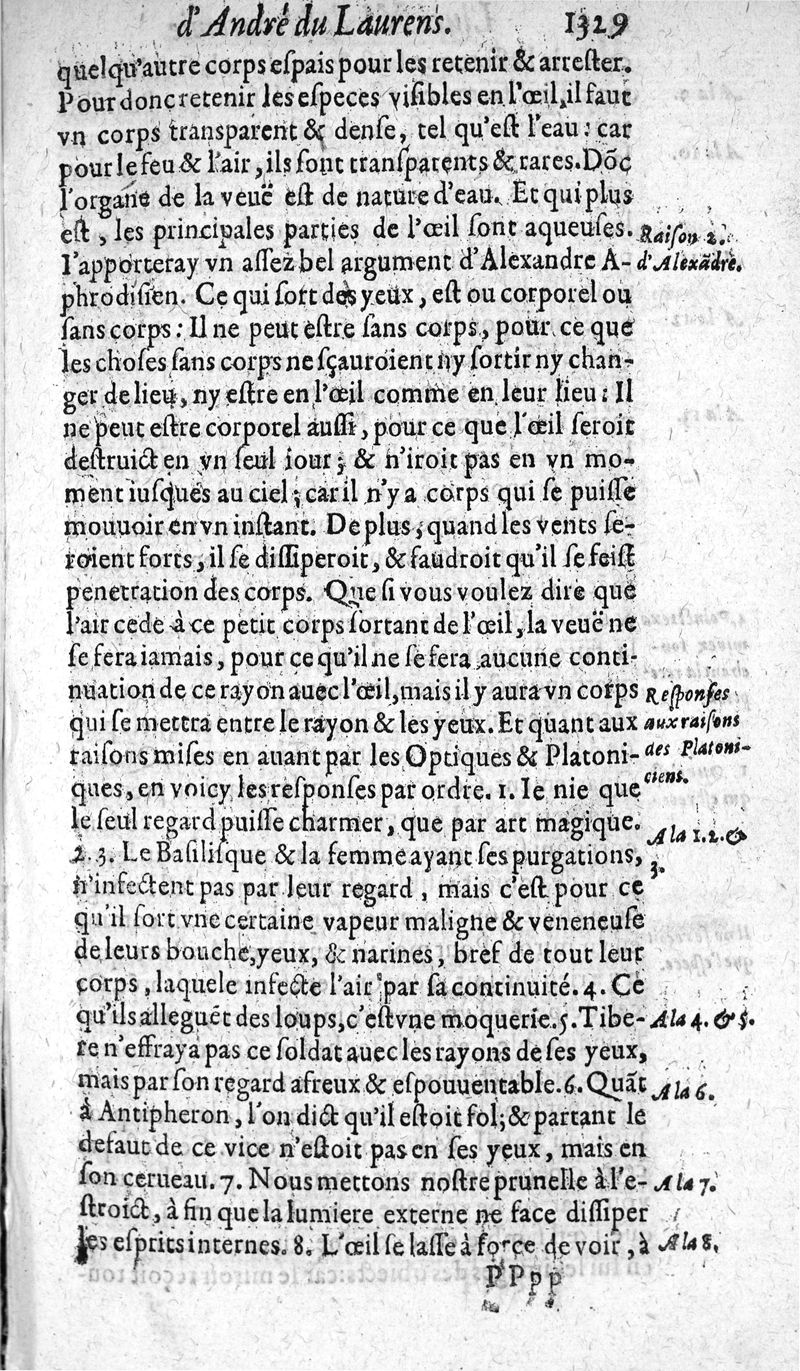 d'André du Laurens. 1329
quelqu'autre corps eſpais pour les retenir & arreſter.
Pour donc retenir les eſpeces viſibles en l'œil, il faut
vn corps tranſparent & denſe, tel qu'eſt l'eau: car
pour le feu & l'air, ils ſont tranſparents & rares. Dōc
l'organe de la veuë eſt de nature d'eau. Et qui plus
eſt, les principales parties de l'œil ſont aqueuſes.
Raiſon 2.
I'apporteray vn aſſez bel argument d'Alexandre A-
d'Alexādre.
phrodiſien. Ce qui ſort des yeux, eſt ou corporel ou
ſans corps: Il ne peut eſtre ſans corps, pour ce que
les choſes ſans corps ne ſçauroient ny ſortir ny chan-
ger de lieu, ny eſtre en l'œil comme en leur lieu: Il
ne peut eſtre corporel auſſi, pour ce que l'œil ſeroit
deſtruict en vn ſeul iour; & n'iroit pas en vn mo-
ment iuſques au ciel; car il n'y a corps qui ſe puiſſe
mouuoir en vn inſtant. De plus, quand les vents ſe-
roient forts, il ſe diſſiperoit, & faudroit qu'il ſe feiſt
penetration des corps. Que ſi vous voulez dire que
l'air cede à ce petit corps ſortant de l'œil, la veuë ne
ſe fera iamais, pour ce qu'il ne ſe fera aucune conti-
nuation de ce rayon auec l'œil, mais il y aura vn corps
Reſponſes
qui ſe mettra entre le rayon & les yeux. Et quant aux
aux raiſons
raiſons miſes en auant par les Optiques & Platoni-
des Platoni-
ques, en voicy les reſponſes par ordre. 1. Ie nie que
ciens.
le ſeul regard puiſſe charmer, que par art magique.
A la 1. 2. &
2. 3. Le Baſiliſque & la femme ayant ſes purgations,
3.
n'infectent pas par leur regard, mais c'eſt pour ce
qu'il ſort vne certaine vapeur maligne & veneneuſe
de leurs bouche, yeux, & narines, bref de tout leur
corps, laquele infecte l'air par ſa continuité. 4. Ce
qu'ils alleguēt des loups, c'eſt vne moquerie. 5. Tibe-
A la 4. & 5.
re n'effraya pas ce ſoldat auec les rayons de ſes yeux,
mais par ſon regard afreux & eſpouuentable. 6. Quāt
A la 6.
à Antipheron, l'on dict qu'il eſtoit fol; & partant le
defaut de ce vice n'eſtoit pas en ſes yeux, mais en
ſon cerueau. 7. Nous mettons noſtre prunelle à l'e-
A la 7.
ſtroict, à fin que la lumiere externe ne face diſſiper
les eſprits internes. 8. L'œil ſe laſſe à force de voir, à
A la 8.
PPpp